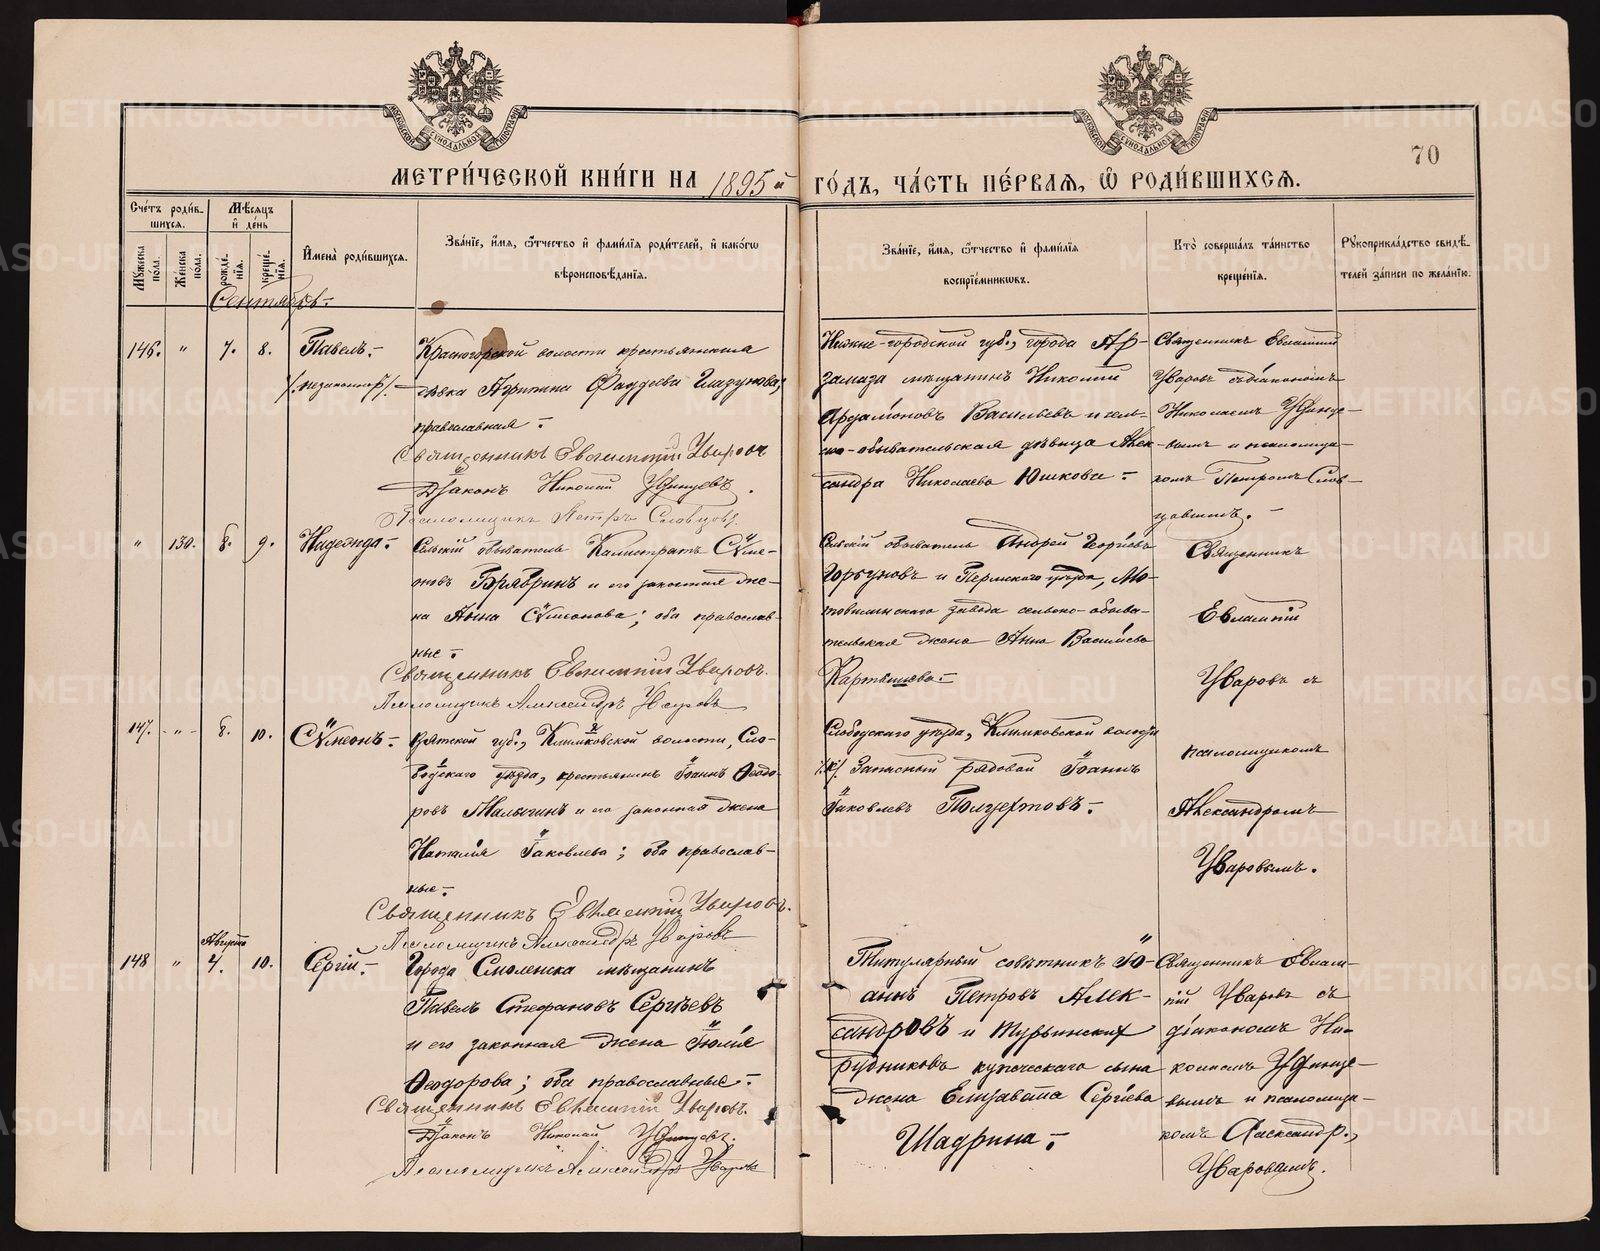 МОСКОВСКОЙ СѴНОДАЛЬНОЙ ТИПОГРАФІИ
МОСКОВСКОЙ СѴНОДАЛЬНОЙ ТИПОГРАФІИ
70
МЕТРИ́ЧЕСКОЙ КНИ́ГИ НА 1895й ГО́ДЪ, ЧА́СТЬ ПЕ́РВАЯ, Ѡ РОДИ́ВШИХСЯ.
Сче́тъ роди́в-
шихся.
Му́жеска по́ла.
Же́нска по́ла.
Мѣ́сяцъ
и де́нь
рожде́-
нія.
креще́-
нія.
Имена̀ роди́вшихся.
Зва́ніе, и́мя, ѻ́тчество и фами́лія роди́телей, и како́гѡ
вѣроисповѣ́данія.
Зва́ніе, и́мя, ѻ́тчество и фами́лія
воспріе́мникѡвъ.
Кто̀ соверша́лъ та́инство
креще́нія.
Рукоприкла́дство свидѣ́-
телей за́писи по жела́нію.
Сентябрь.
146. " 7. 8. Павелъ.
/незаконнор/.
Красногорской волости крестьянская
дѣвка Агрипина Фаддеева Гладунова;
православная.
Священникъ Евлампій Уваровъ
Діаконъ Николай Удинцевъ.
Псаломщикъ Петръ Словцовъ.
Ниже-городской губ., города Ар-
замаза мѣщанинъ Николай
Ардаліоновъ Васильевъ и сель-
ско-обывательская дѣвица Алек-
сандра Николаева Юшкова.
Священникъ Евлампій
Уваровъ съ діакономъ
Николаемъ Удинце-
вымъ и псаломщи-
комъ Петромъ Слов-
цовымъ.
" 130. 8. 9. Надежда.
Сельскій обыватель Калистратъ Сѵме-
оновъ и его законная же-
на Анна Сѵмеонова; оба православ-
ные.
Священникъ Евлампій Уваровъ.
Псаломщикъ Александръ Уваровъ
Сельскій обыватель Андрей Георгіевъ
Горбуновъ и Пермскаго уѣзда, Мо-
товилинскаго завода сельско-обыва-
тельская жена Анна Васильева
Картышева.
Священникъ
Евлампій
Уваровъ съ
псаломщикомъ
Александромъ
Уваровымъ.
147. " 8. 10. Сѵмеонъ.
Вятской губ., Климковской волости, Сло-
бодскаго уѣзда, крестьянинъ Іоаннъ Ѳеодо-
ровъ Малыгинъ и его законная жена
Наталія Іаковлева; оба православ-
ные.
Священникъ Евлампій Уваровъ.
Псаломщикъ Александръ Уваровъ
Слободскаго уѣзда, Климковской волости
Запасный рядовой Іоаннъ
Іаковлевъ Полуектовъ.
Августа
148 " 4. 10. Сергій.
Города Смоленска мѣщанинъ
Павелъ Стефановъ Сергѣевъ
и его законная жена Іюлія
Ѳеодорова; оба православные.
Священникъ Евлампій Уваровъ.
Діаконъ Николай Удинцевъ.
Псаломщикъ Александръ Уваровъ
Титулярный совѣтникъ Іо-
аннъ Петровъ Алек-
сандровъ и Турьинскихъ
рудниковъ купеческаго сына
жена Елизавета Сергіева
Шадрина.
Священникъ Евлам-
пій Уваровъ съ
діакономъ Ни-
колаемъ Удинце-
вымъ и псаломщи-
комъ Александр.
Уваровымъ.
METRIKI.GASO-URAL.RU